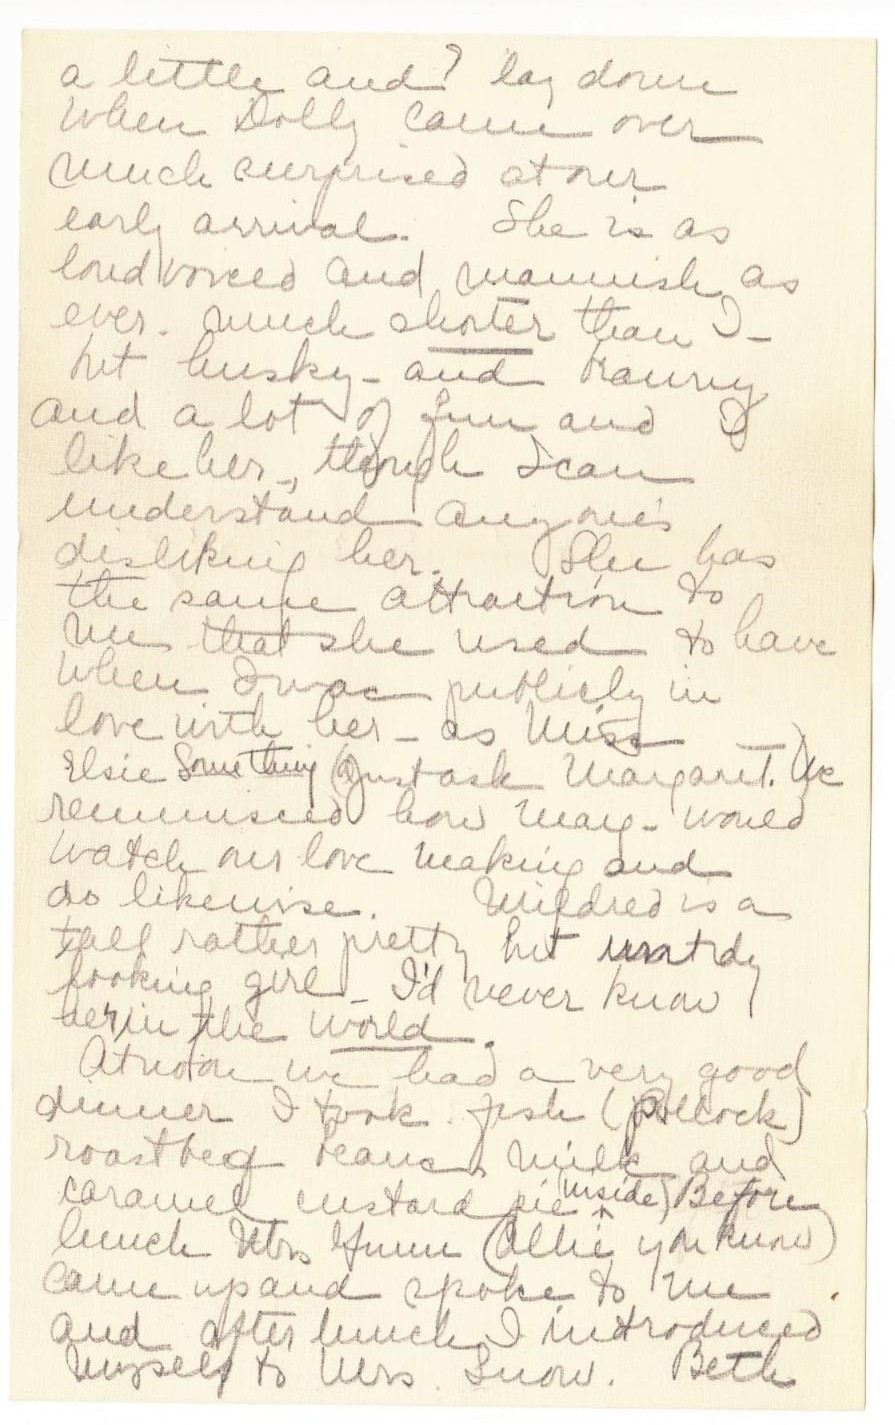 a little and? lay down
when Dolly came over
much surprised at our
early arrival. She is as
loud voiced and mannish as
ever. much shorter than I -
but husky - and brawny
and a lot of fun and I
like her -, though I can
understand anyone's
disliking her. She has
the same attraction to
me that she used to have
when I was publicly in
love with her - as Miss
Elsie Something (Just ask Margaret.) We
reminisced how Marg - would
watch our love making and
do likewise. Mildred is a
tall rather pretty but
looking girl - I'd never know
her in the world.
At noon we had a very good
dinner I took fish (pollock)
roast beef beans, milk and
caramel custard pie (inside) Before
lunch Mrs Gunn (Allie you know)
came up and spoke to me
and after lunch I introduced
myself to Mrs. Snow. Beth